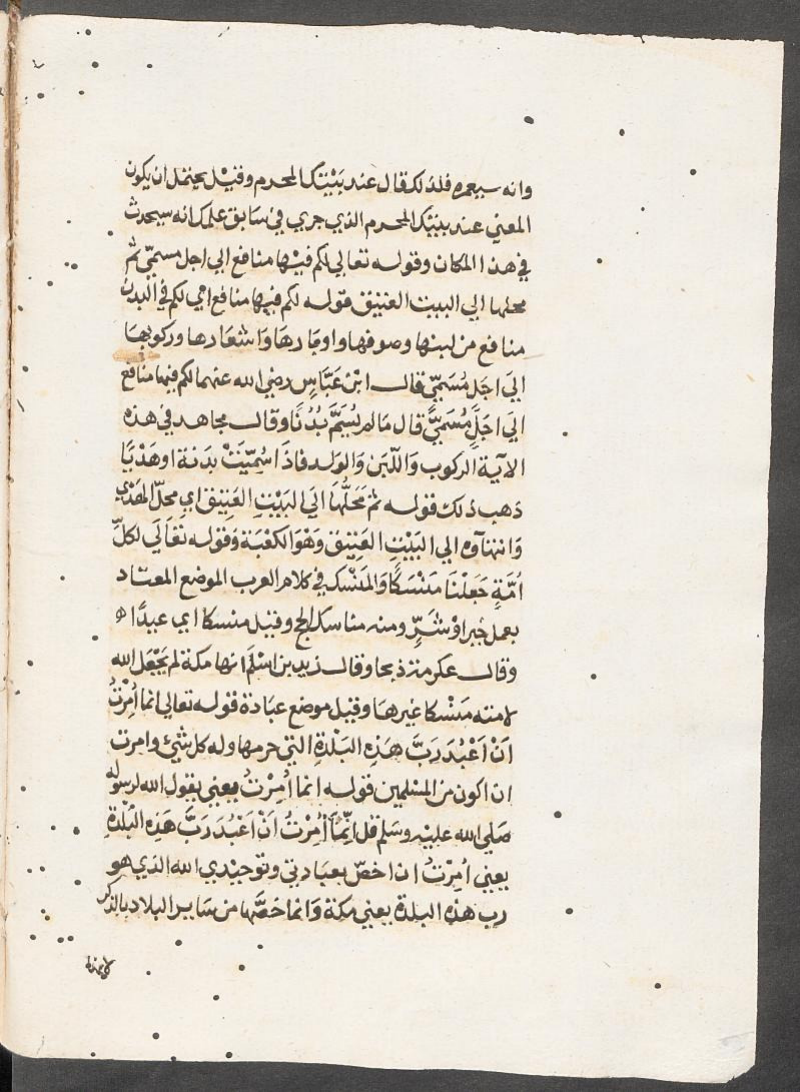 وانه سيعمره فلذلك قال عند بَيْتِك المحرم وقيل يحتمل ان يكون
المعني عند بيتِك المحرم الذي جري في سَابق علمك انه سيحدث
في هذا المكان وقوله تعالي لكم فيْها منافع الي اجل مسميّ ثم
محلها الي البيت العتيق قوله لكم فيها منافع اي لكم في البدن
منافع من لبنها وصوفها واوبارهَا وَاشعَارها وركوبهَا
اليَ اجَل مُسَميّ قال ابْن عَبَّاسٍ رضي الله عنهما لكم فيها منافع
اليَ اجَلٍ مُسَميًّ قال مَا لم يُسَمَّ بُدْنًا وقال مجاهد في هذه
الاية الركوب وَاللّبَن وَالولد فاذَا سُمّيَتْ بدَنة اوهَدْيًا
ذهب ذلك قوله ثمْ مَحَلُّهَا اليَ البَيْتِ العَتِيق اي محلّ الهَدْي
وَانتهآوه الي البَيْتِ العَتِيق وَهْوَ الكعْبَة وَقوله تعَالَي لكلِّ
اُمَّةٍ جَعَلْنَا مَنْسَكًا وَالمَنْسَك في كلام العرب الموضع المعتاد
بعمل خيرا وْ شَرٍّ ومنه مناسك الج وقيل منسكا اي عيدًا
وقال عكرمة ذبحا وقال زيد بن اسْلَم انها مكة لم يَجْعَل الله
لامته مَنْسكا غيرهَا وقيل موضع عبَادة قوله تعالي انما اُمِرْتُ
اَنْ اَعْبُدَ رَبَّ هَذِهِ البَلْدَةِ التي حرمها وله كل شئ وامرت
ان اكون من المسْلمين قوله انما اُمِرْتُ يعني يقول الله لرسوله
صَلي الله عليه وسَلم قل اِنَّمَا اُمِرْتُ اَنْ اَعْبُدَ رَبَّ هَذِهِ البَلْدَةِ
يعني اُمِرْتُ ان اخصّ بعبَادتي وتوحيْدي الله الذي هو
رب هذِه البلدَة يعني مكة وَانما خَصَّها من سَاير البلاد بالذكر